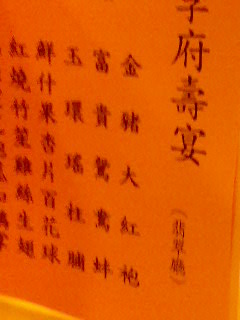 府壽宴
（翡翠廳）
金豬大紅袍
富貴鴛鴦蚌
玉環瑤柱脯
鮮什果杏片百花球
紅燒竹笙雞絲生翅